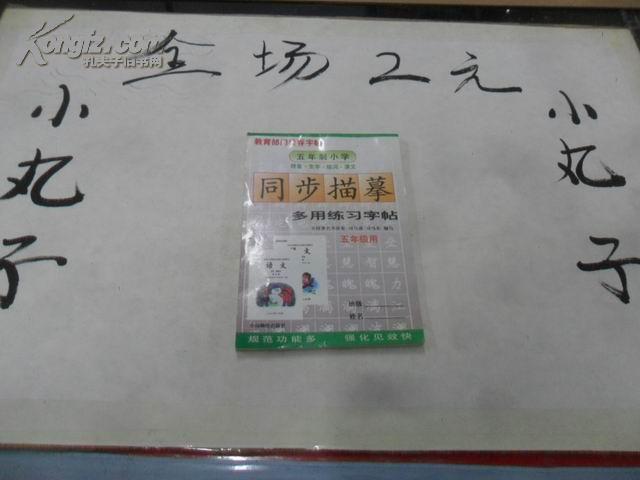 Kongfz.com
孔夫子旧书网
全场2元
小丸子
小丸子
五年制小学
同步描摹
多用练习字帖
五年级用
语文
班级
姓名
规范功能多 强化见效快